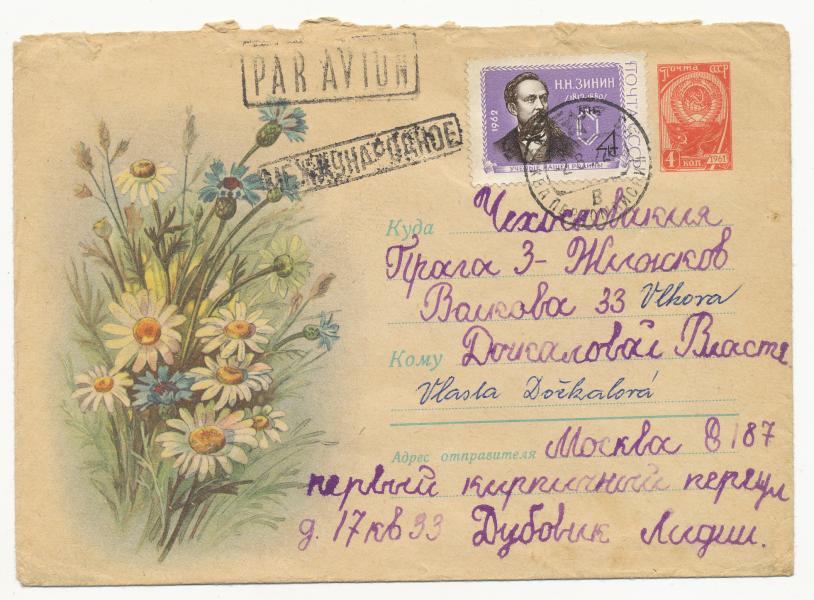 PAR AVION
МЕЖДУНАРОДНОЕ
1962
Н.Н.ЗИНИН
/1812-1880/
ПОЧТА СССР
4к
УЧЕНЫЕ НАШЕЙ РОДИНЫ
Почта СССР
4 коп 1961
В
Куда Чехословакия
Прага 3- Жижков
Валкова 33 Vlkova
Кому Дочкаловай Власте
Vlasta Dočkalová
Адрес отправителя Москва Е 187
первый кирпичный переул
д. 17 кв 93 Дубовик Лидии.